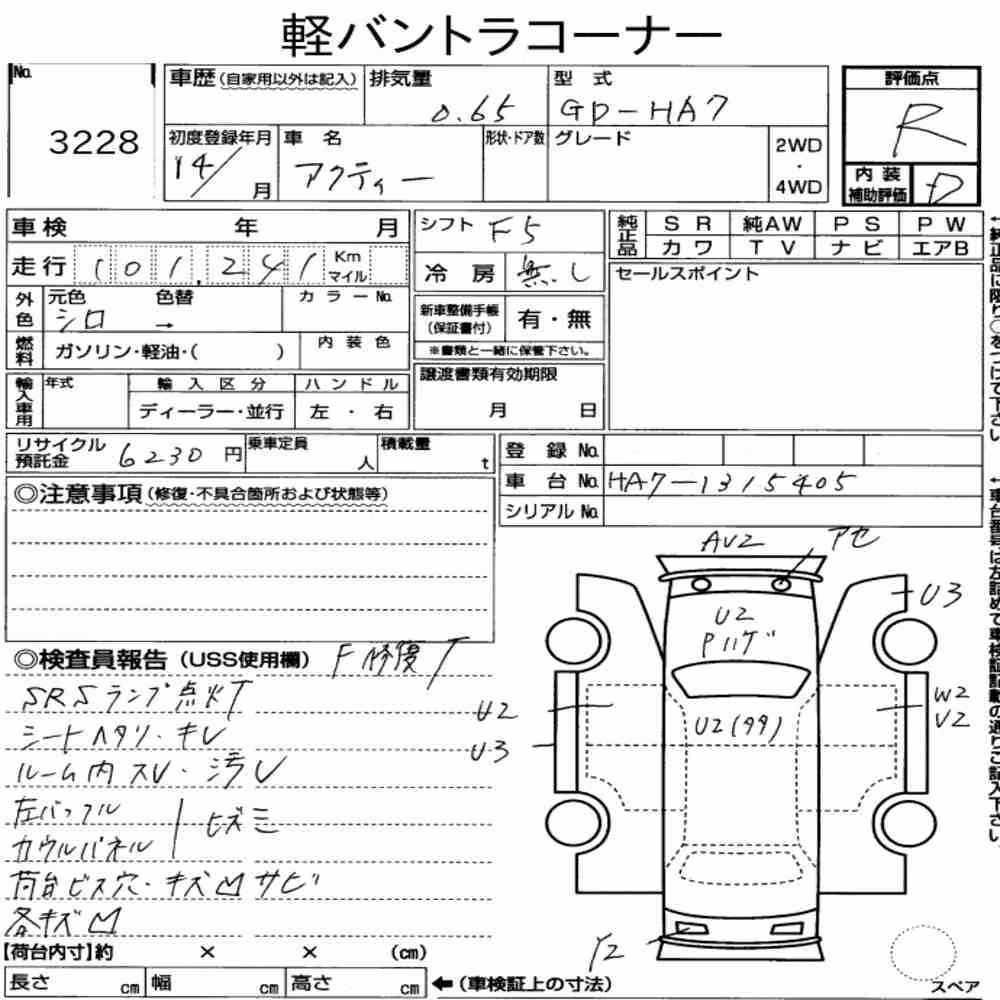 軽バントラコーナー
No. 3228
車歴 (自家用以外は記入)
排気量 0.65
型式 GD-HA7
評価点 R
初度登録年月 14/ 月
車名 アクティー
形状・ドア数
グレード
2WD ・ 4WD
内装補助評価 D
車検 年 月
シフト F5
純正品 SR 純AW PS PW
カワ TV ナビ エアB
走行 101,241 Km マイル
冷房 無し
セールスポイント
外色 元色 シロ 色替 → カラーNo.
新車整備手帳 (保証書付) 有・無
※書類と一緒に保管下さい。
燃料 ガソリン・軽油・( ) 内装色
譲渡書類有効期限 月 日
輸入車用 年式 輸入区分 ハンドル
ディーラー・並行 左・右
リサイクル預託金 6230円
乗車定員 人
積載量 t
登録No.
車台No. HA7-1315405
シリアルNo.
◎注意事項 (修復・不具合箇所および状態等)
←純正品に限り○をつけて下さい。
←車台番号は左詰めで車検証記載の通りご記入下さい。
AV2 アセ
U3
U2
Pハゲ
U2(タタ)
U2
U3
W2
V2
Y2
◎検査員報告 (USS使用欄) F修復T
SRSランプ点火T
シートヘタリ・キレ
ルーム内スレ・汚レ
左バッフル
カウルパネル ヒズミ
荷台ビス穴・キズ凹サビ
各キズ凹
【荷台内寸】約 × × (cm)
長さ cm 幅 cm 高さ cm ←(車検証上の寸法)
スペア